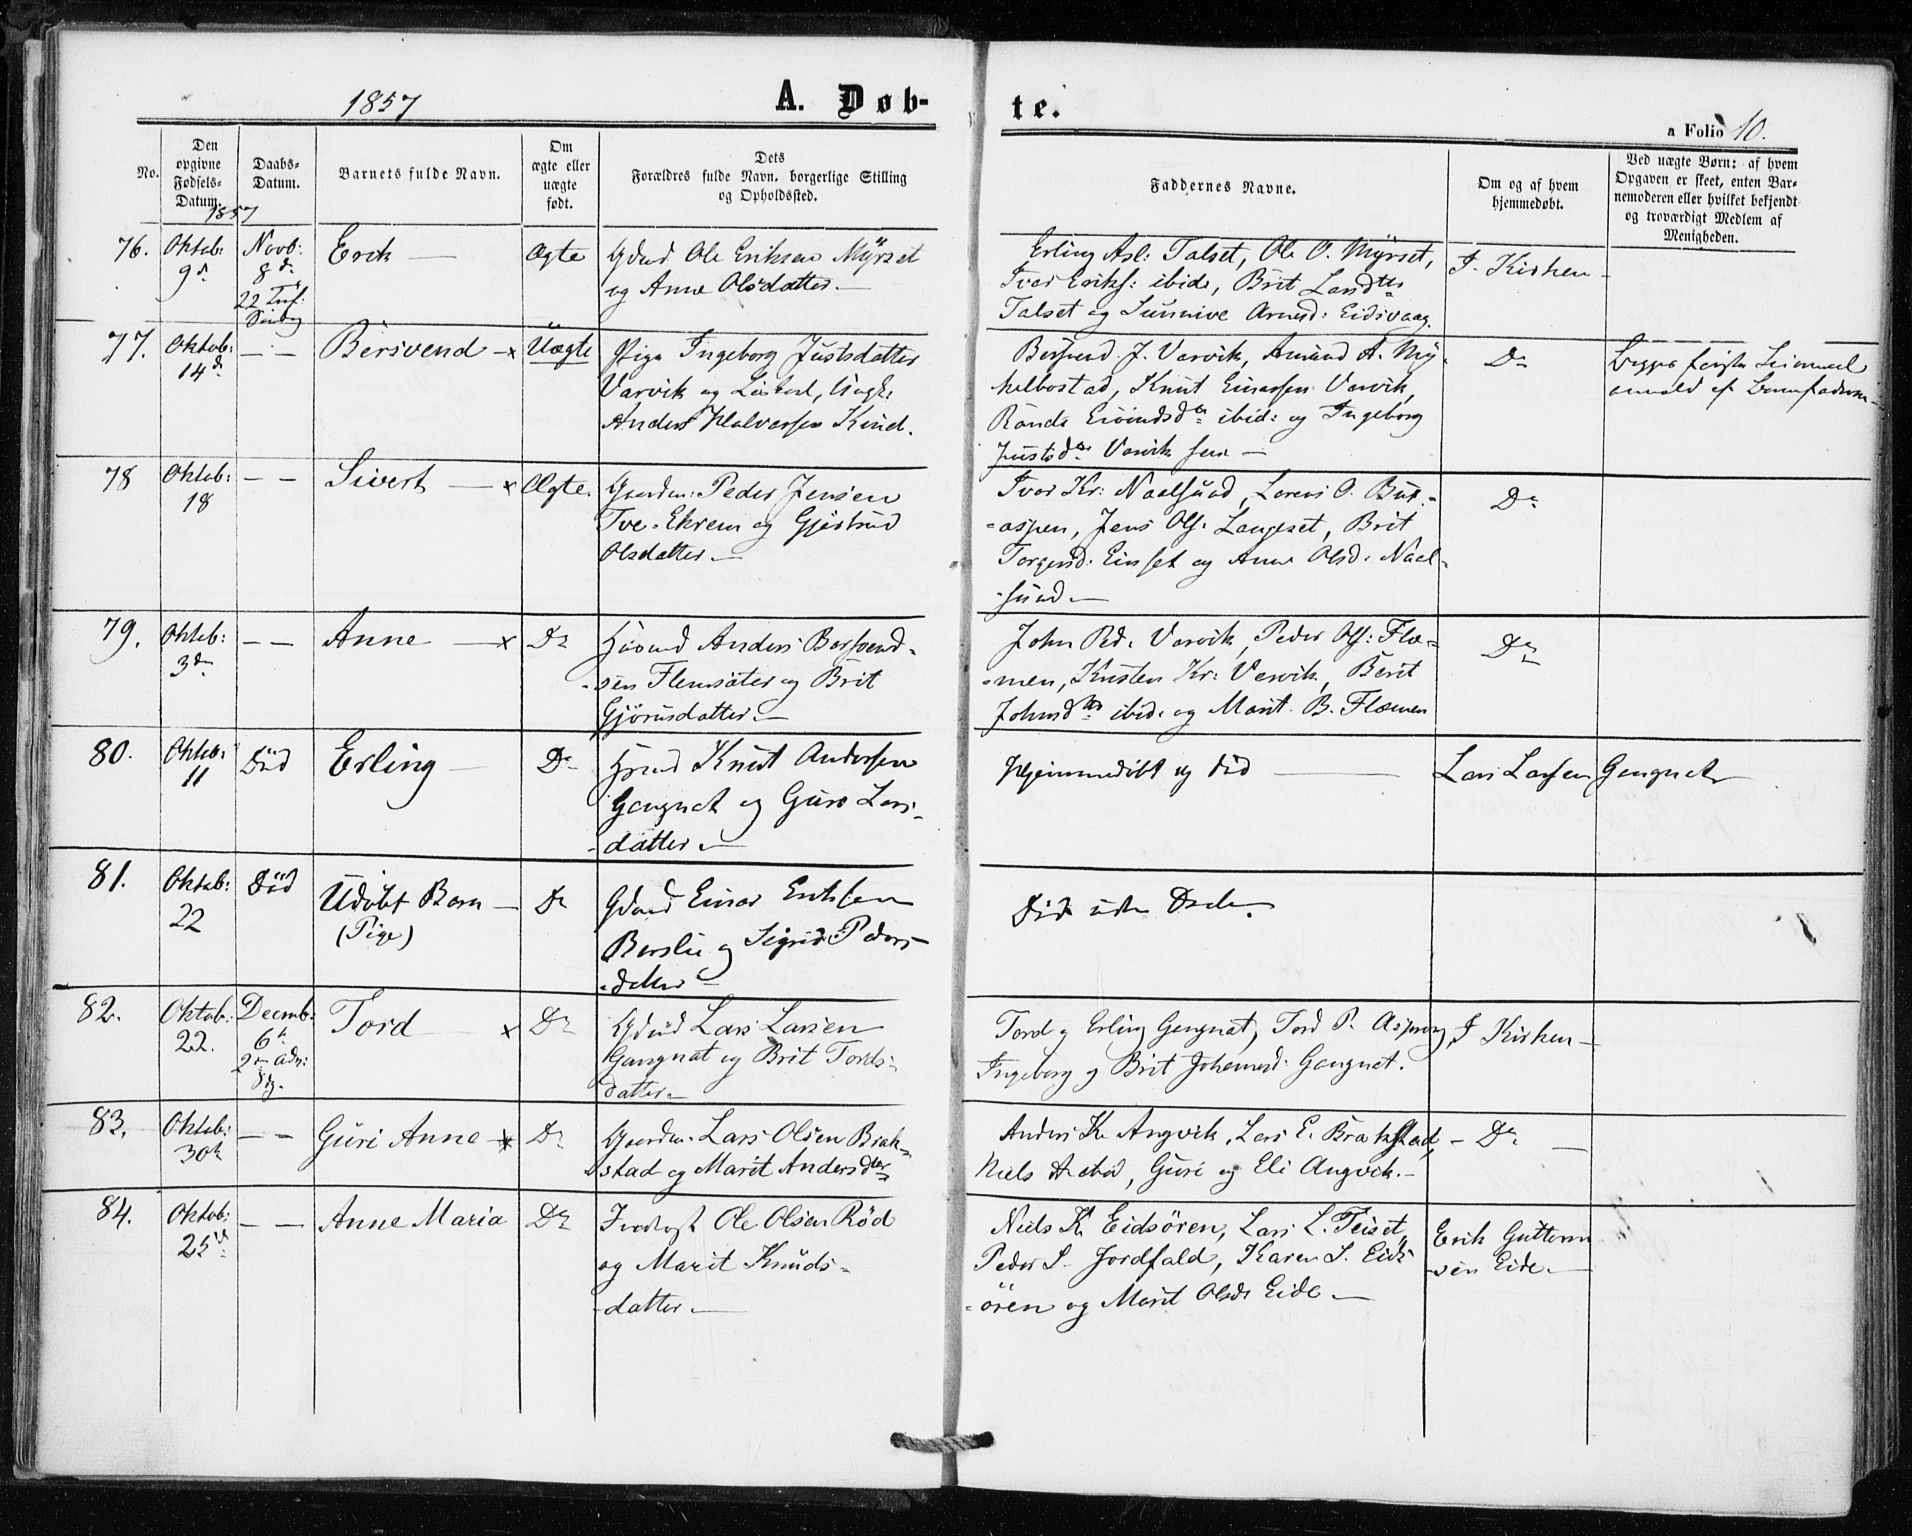 1857
A. Døb-
te.
a Folio 10.
No.
Den opgivne Fødsels-Datum.
Daabs-Datum.
Barnets fulde Navn.
Om ægte eller uægte født.
Dets
Forældres fulde Navn, borgerlige Stilling
og Opholdssted.
Faddernes Navne.
Om og af hvem
hjemmedøbt.
Ved uægte Børn: af hvem
Opgaven er skeet, enten Bar-
nemoderen eller hvilket bekjendt
og troværdigt Medlem af
Menigheden.
1857
76. Oktob: 9de Novb: 8de 22 Trf: Erik — Ægte
Ole Eriksen Myrset
og Anne Olsdatter —
Erling Asl: Talset, Ole O. Myrset,
Ivar Eriks: ibid:, Brit
Talset og Sunnive Arnesd: Eidsvaag.
I Kirken —
77. Oktob: 14de — — Bersvend — x Uægte
Pige Ingeborg Justsdatter
Varvik og
Anders Halvorsen Kind.
Bersvend J. Varvik, Amund A. My-
klebostad, Knut Einarsen Varvik,
ibid: og Ingeborg
Justsdtr Varvik
Do
78 Oktob: 18 — — Sivert — x Ægte.
Gaardm: Peder Jensen
Tve-Ekrem og Gjertrud
Olsdatter —
Ivar Kr: Naalsund, Lorens O. Bur-
-aspen, Jens Ols: Langset, Brit
Torgersd: Einset og Anne Olsd: Naal-
-sund —
Do
79. Oktob: 3de — — Anne — x Do
Anders Bersvend-
-sen Flemsæter og Brit
Gjørusdatter —
John Ped: Varvik, Peder Ols: Flæ-
-men, Kristen Kr: Varvik, Berit
Johnsdtr ibid: og Marit B. Flæmen
Do
80. Oktob: 11 Död Erling — Do
Knut Andersen
Gangnat og Guro Lars-
-datter —
Hjemmedöbt og död —
Lars Larsen Gangnat
81. Oktob: 22 Död Udöbt Barn —
(Pige)
Do
Einar Eriksen
Berslie og Sigrid Peders-
-datter —
Död uden Daab.
82. Oktob: 22. Decemb: 6te 2den Adv: Tord — x Do
Lars Larsen
Gangnat og Brit Tords-
datter —
Tord og Erling Gangnat, Tord P. Aspøen,
Ingeborg og Brit Johannesd: Gangnat.
I Kirken —
83. Oktob: 30te — — Guri Anne — x Do
Gaardm: Lars Olsen Brak-
stad og Marit Andersdtr
Anders K. Angvik, Lars E. Brakstad,
Niels, Guri og Eli Angvik —
— Do —
84. Oktob: 25de — — Anne Maria Do
Ole Olsen Röd
og Marit Knuds-
-datter —
Niels K. Eidsören, Lars L. Teiset,
Peder S. Jordfald, Karen S. Eids-
-ören og Marit Olsd: Eide —
Erik Guttorm-
-sen Eide —